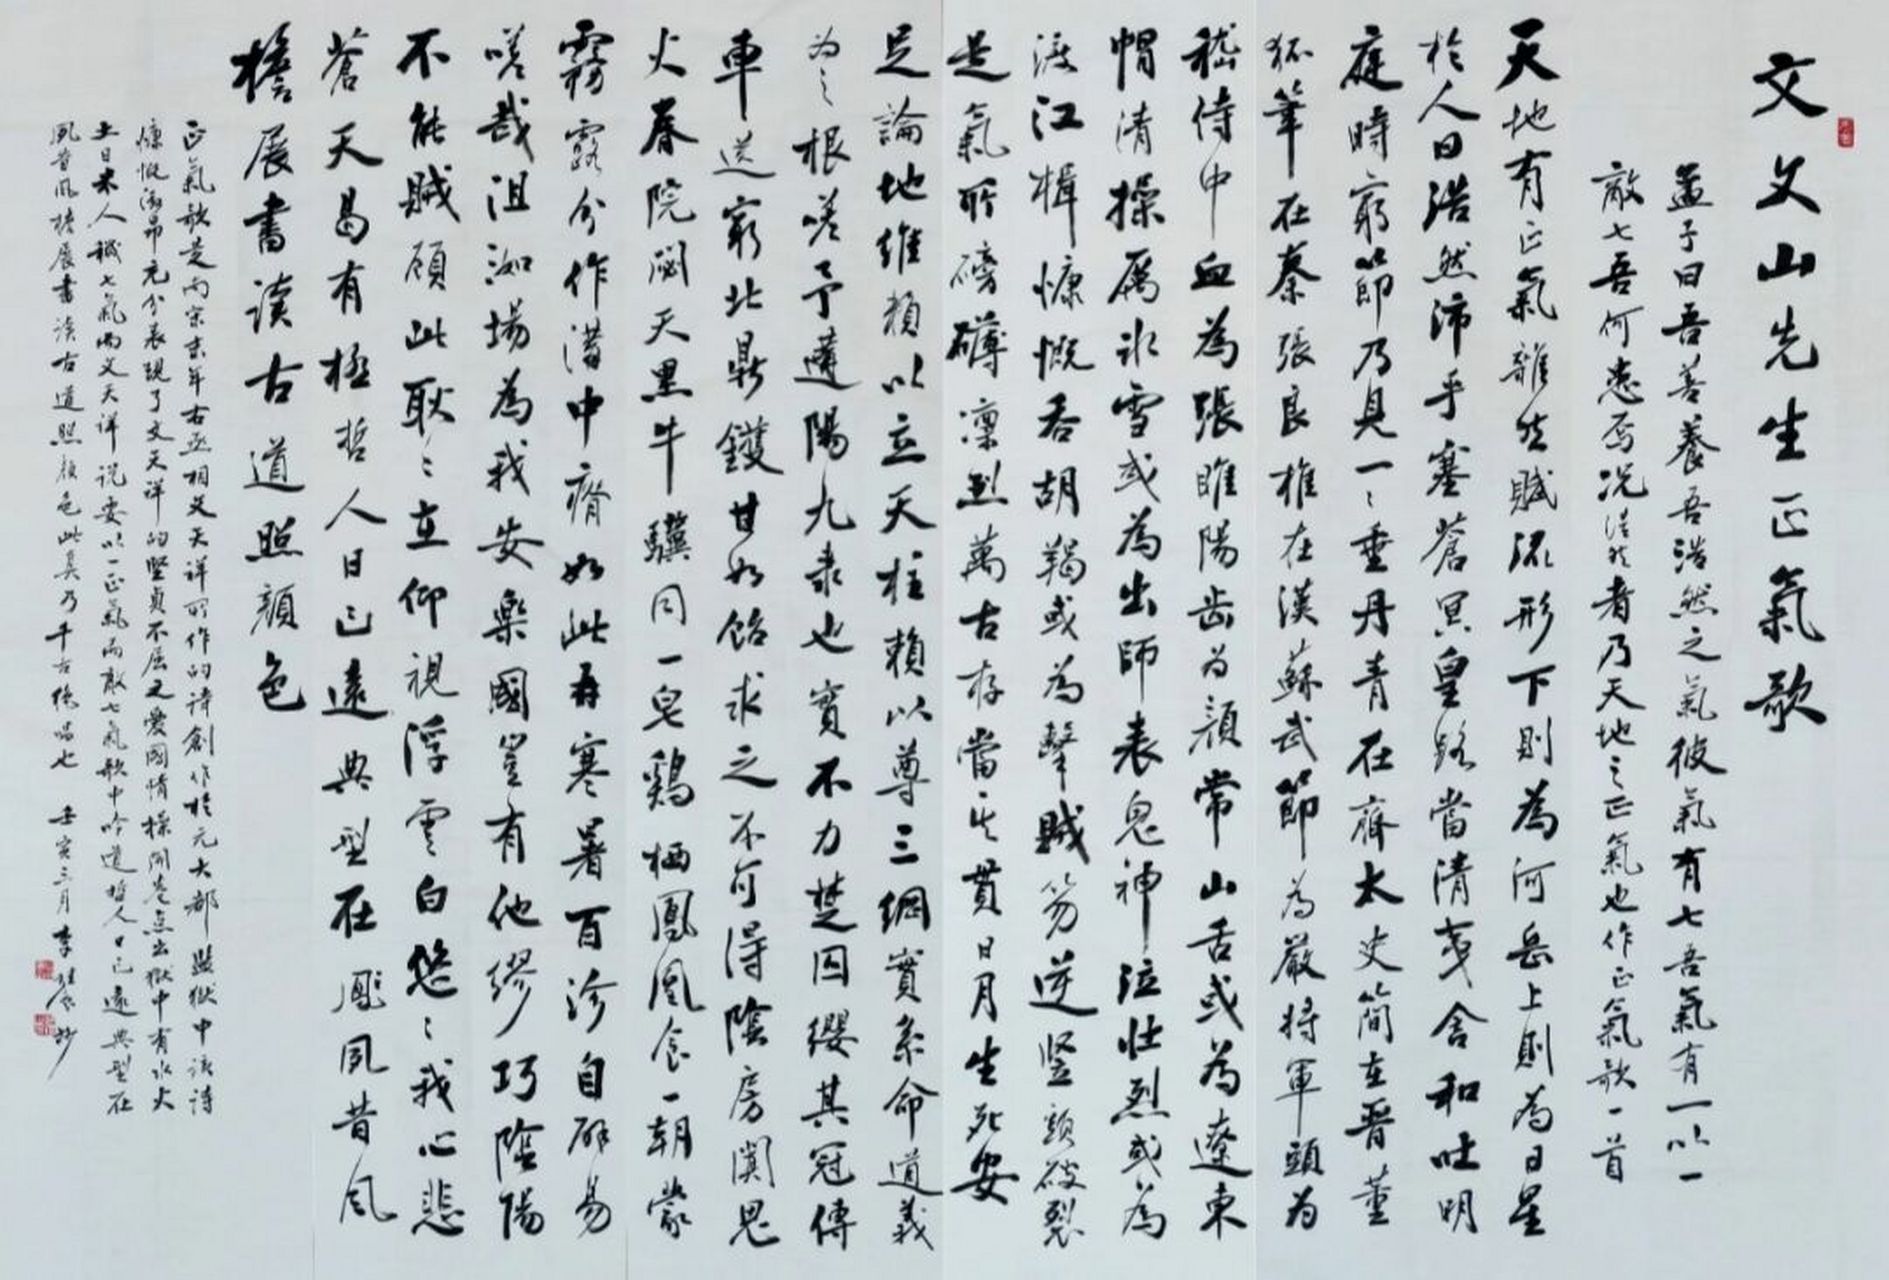 文文山先生正氣歌
孟子曰吾善養吾浩然之氣彼氣有七吾氣有一以一
敵七吾何患焉况浩然者乃天地之正氣也作正氣歌一首
天地有正氣雜然賦流形下則為河岳上則為日星
於人曰浩然沛乎塞蒼冥皇路當清夷含和吐明
庭時窮節乃見一一垂丹青在齊太史簡在晋董
狐筆在秦張良椎在漢蘇武節為嚴將軍頭為
嵇侍中血為張睢陽齒为顔常山舌或為遼東
帽清操厲冰雪或為出師表鬼神泣壯烈或為
渡江楫慷慨吞胡羯或為擊賊笏逆竖頭破裂
是氣所磅礴凛烈萬古存當其貫日月生死安
足論地維賴以立天柱賴以尊三綱實系命道義
为之根嗟予遘陽九隶也實不力楚囚纓其冠傳
車送窮北鼎鑊甘如飴求之不可得陰房闃鬼
火春院閟天黑牛驥同一皂鷄栖鳳凰食一朝蒙
霧露分作溝中瘠如此再寒暑百沴自辟易
嗟哉沮洳場為我安樂國豈有他繆巧陰陽
不能賊顧此耿耿在仰視浮雲白悠悠我心悲
蒼天曷有極哲人日已遠典型在夙昔风
檐展書读古道照顔色
正氣歌是南宋末年右丞相文天祥所作的诗創作於元大都监狱中该詩
慷慨激昂充分表現了文天祥的堅貞不屈之愛國情操開卷点出獄中有水火
土日米人穢七氣而文天祥说要以一正氣而敵七氣歌中吟道哲人日已遠典型在
夙昔风檐展書读古道照顔色此真乃千古絶唱也 壬寅三月李